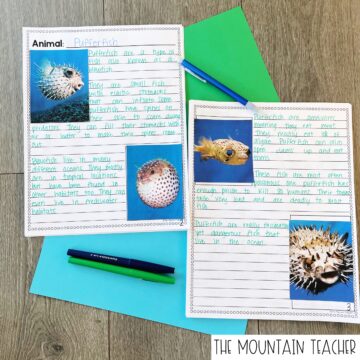 Animal: Pufferfish
Pufferfish are a type of
fish also known as a
blowfish.
They are small fish
with elastic stomachs
that can inflate. Some
pufferfish have spines on
skin to scare away
predators. They can fill their stomachs with
air or water to make their spines
out.
Pufferfish live in many
different oceans. They mostly
are in tropical locations
but have been found in
other habitats too. They can
even live in freshwater
habitats.
2
Pufferfish are omnivores
meaning they eat meat.
They mostly eat
algae. Pufferfish can also
open clams up and eat
them.
These fish are most often
poisonous. One pufferfish has
enough poison to kill 30 humans. Their
very hard and are
fish.
Pufferfish are really
yet dangerous fish that
live in the ocean.
3
THE MOUNTAIN TEACHER